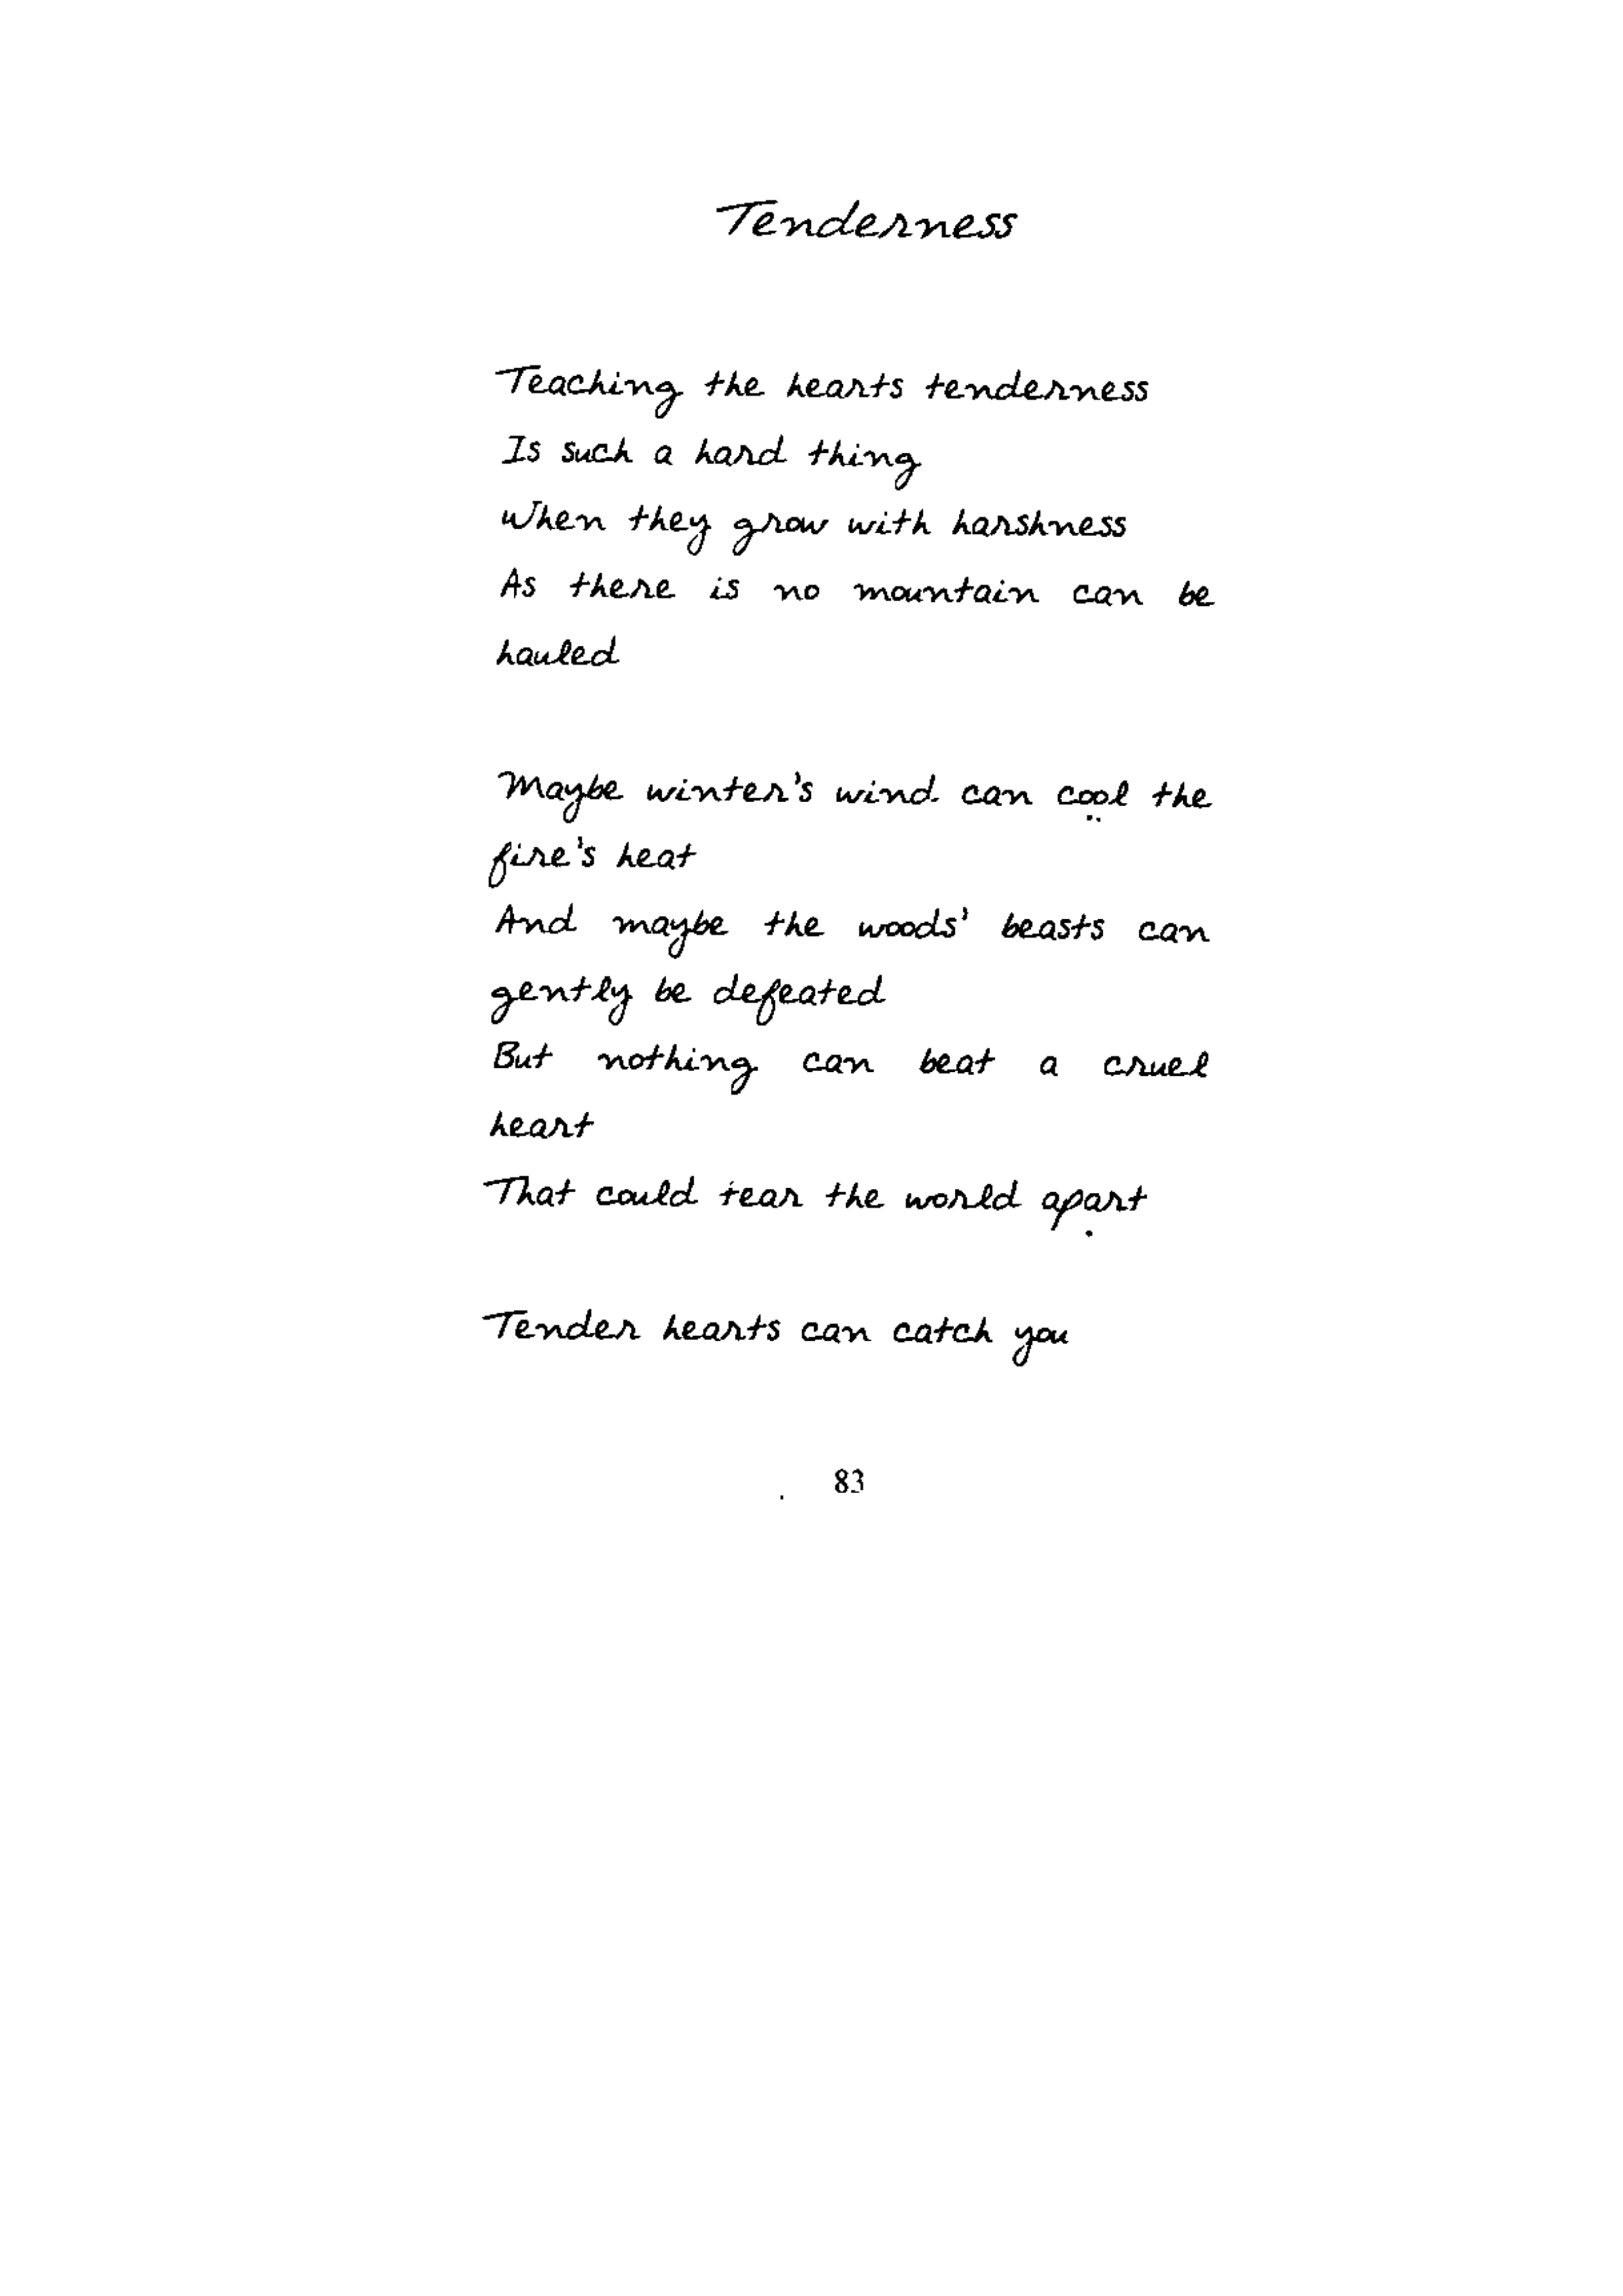 Tenderness
Teaching the hearts tenderness
Is such a hard thing
When they grow with harshness
As there is no mountain can be
hauled
Maybe winter's wind can cool the
fire's heat
And maybe the woods' beasts can
gently be defeated
But nothing can beat a cruel
heart
That could tear the world apart
Tender hearts can catch you
83